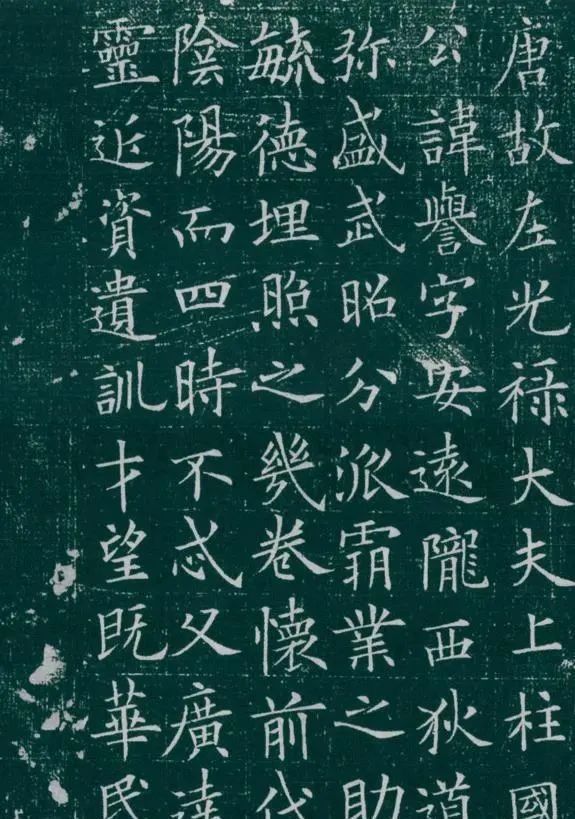 唐故左光禄大夫上柱國
公諱譽字安遠隴西狄道
弥盛武昭分派霸業之助
毓德埋照之㡬卷懷前代
陰陽而四時不忒父廣達
靈近資遺訓才望既華民